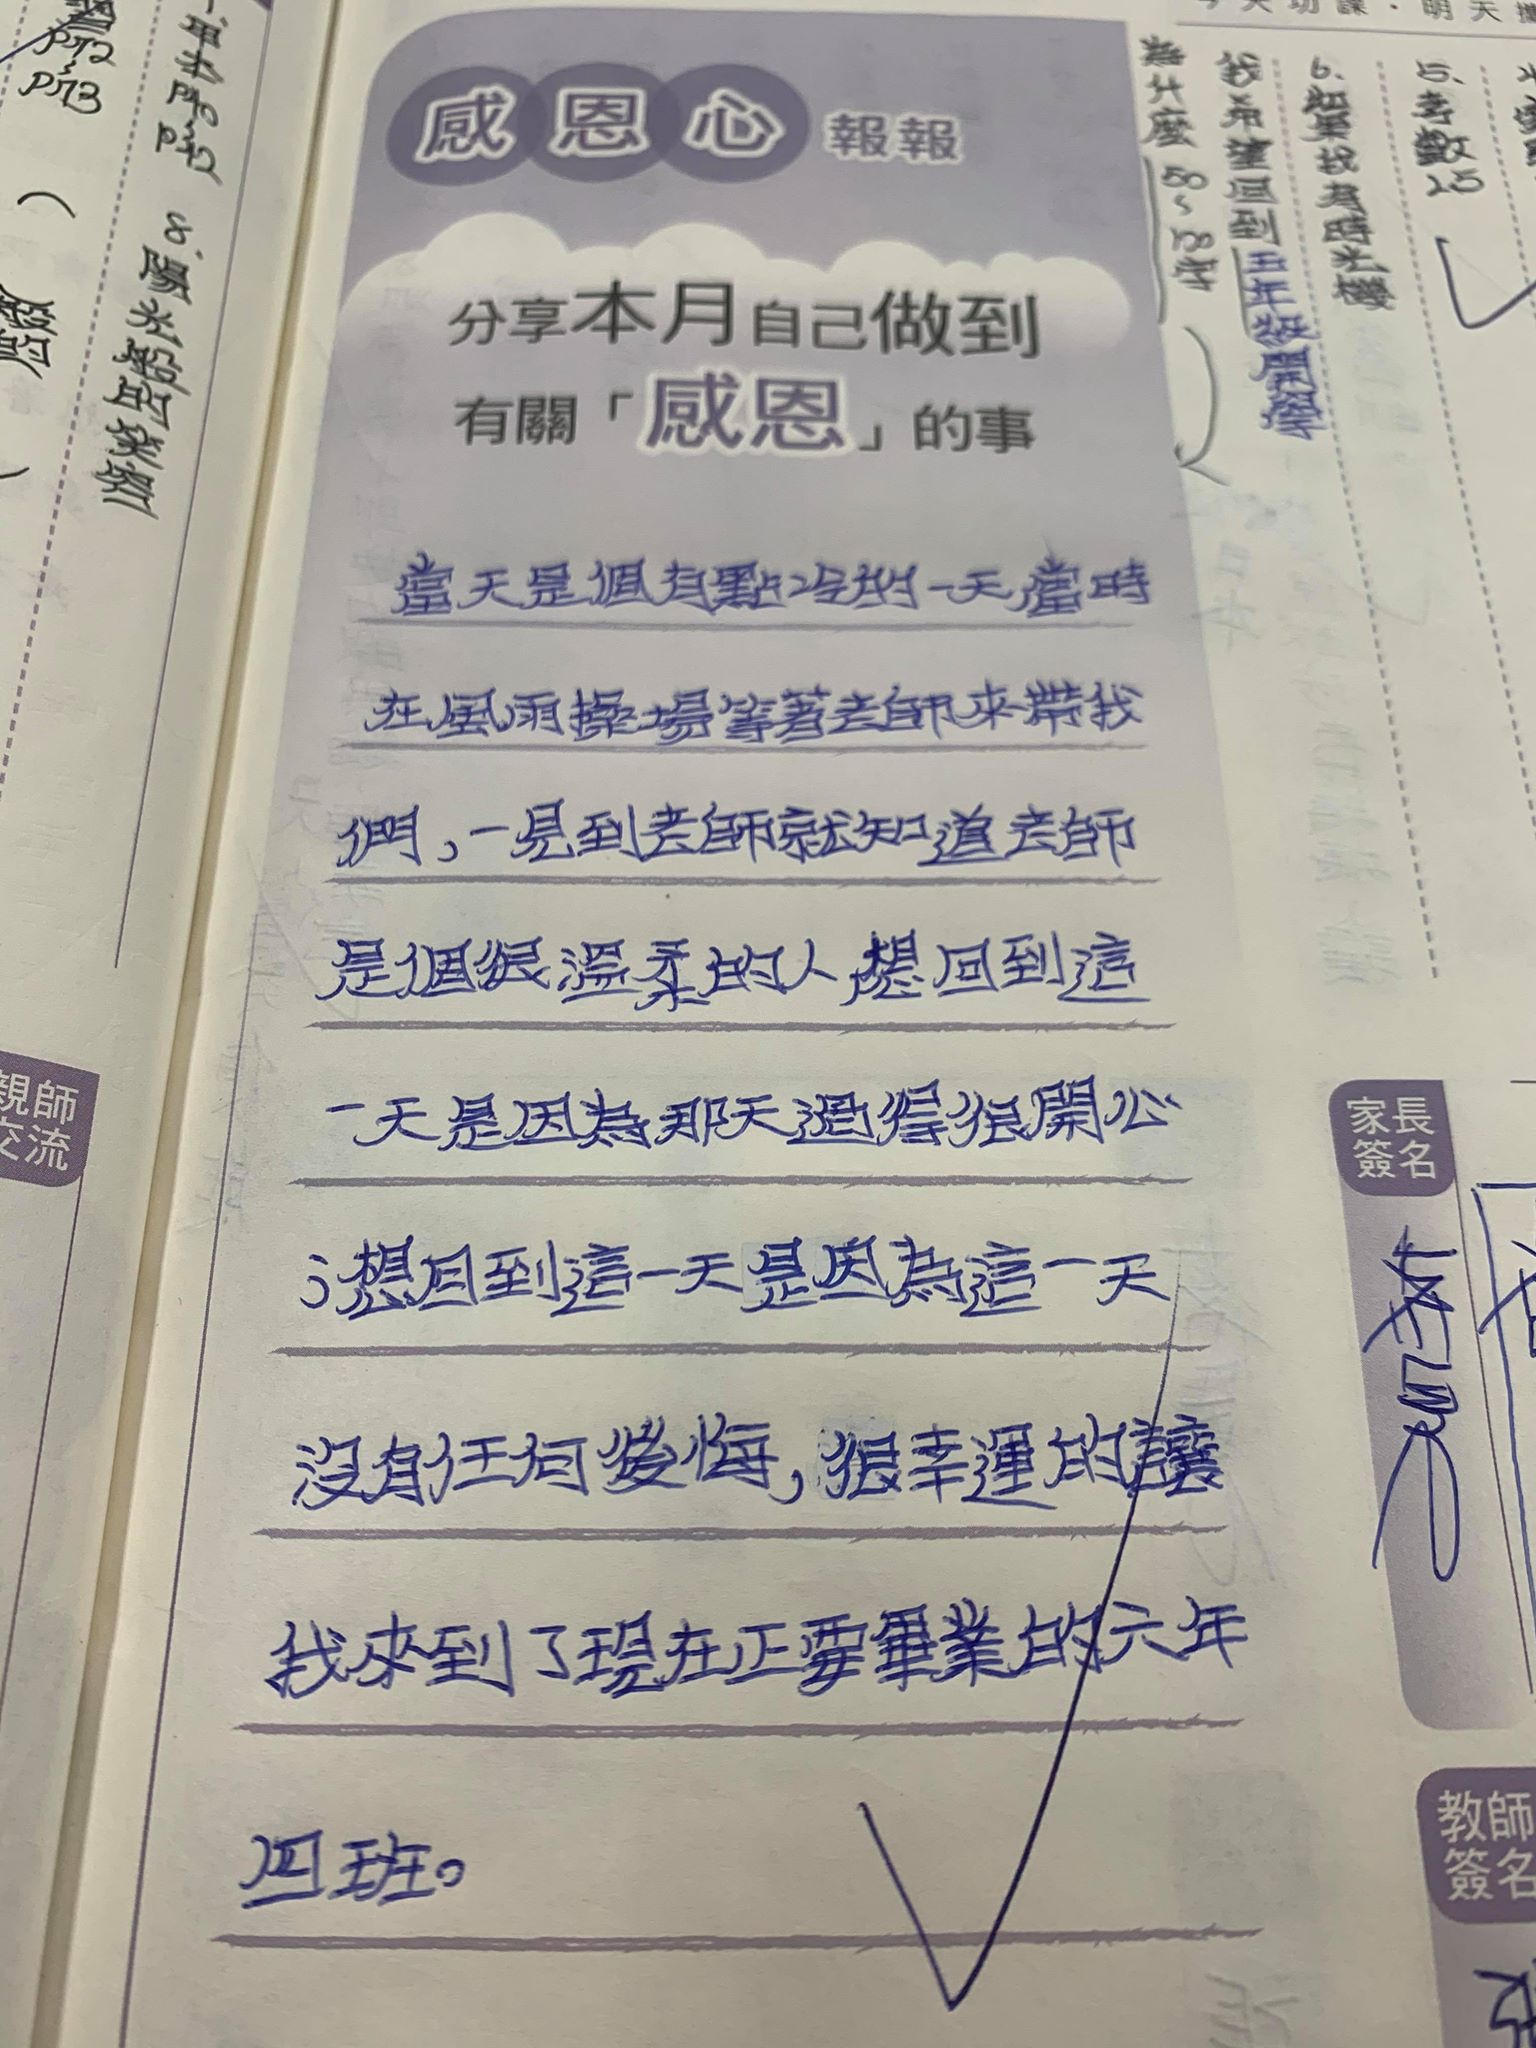 感恩心 報報
分享本月自己做到
有關「感恩」的事
當天是個有點冷的一天當時
在風雨操場等著老師來帶我
們，一見到老師就知道老師
是個很溫柔的人想回到這
一天是因為那天過得很開心
；想回到這一天是因為這一天
沒有任何後悔，很幸運的讓
我來到了現在正要畢業的六年
四班。
5.考數25
6.如果我有時光機
我希望回到五年級開學
為什麼 50~100字
8.陽光般的笑容
P72
P73
親師
交流
家長
簽名
教師
簽名